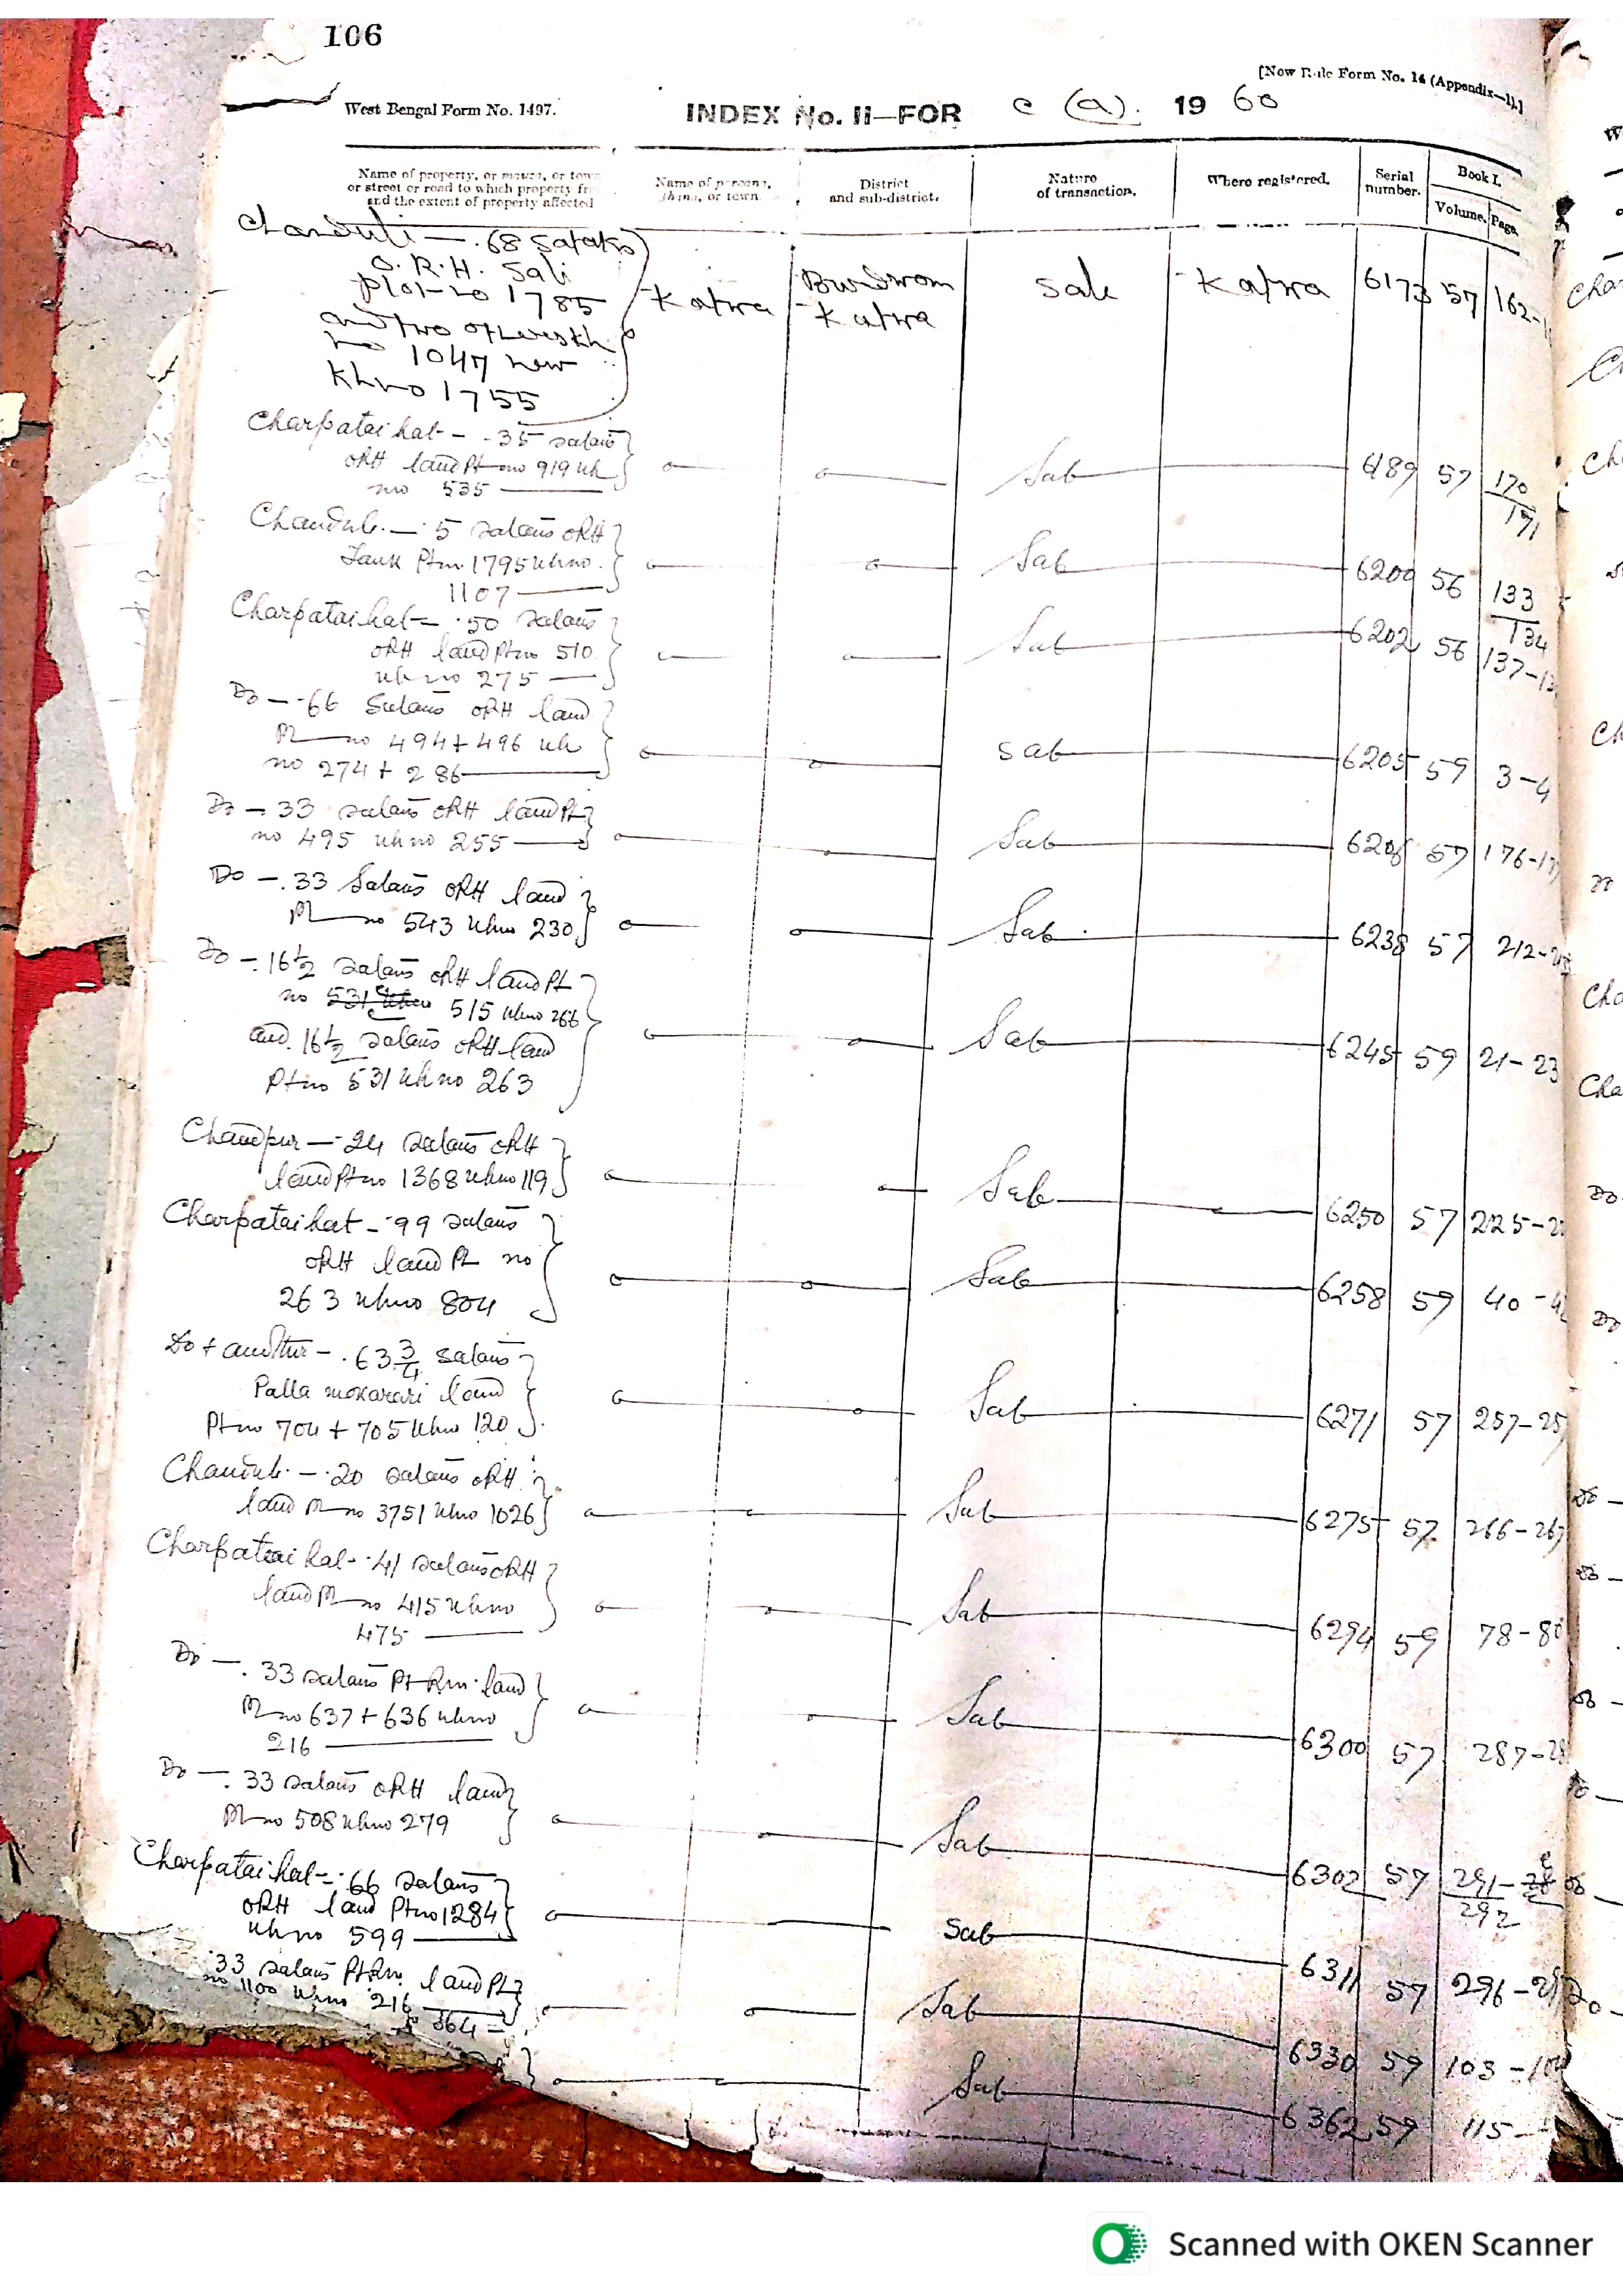 106
[New Rule Form No. 14 (Appendix—1).]
West Bengal Form No. 1497.
INDEX No. II—FOR C (a). 1960
Name of property, or mauza, or town
or street or road to which property
and the extent of property affected
Name of pargana, thana, or town.
District and sub-district.
Nature of transaction.
Where registered.
Serial number.
Book I.
Volume. Page.
Chanduli — .68 Satak
O.R.H. Sali
Plot no 1785
no 1047 new
Kh no 1755
Katwa Burdwan Katwa Sale Katwa 6173 57 162-
Charpataihat - .35 satak
ORH land Pt no 919 kh
no 535
Sale 6189 57 170/171
Chanduli — .5 satak ORH
Tank Pt no 1795 kh no
1107
Sale 6200 56 133/134
Charpataihat - .50 satak
ORH land Pt no 510
kh no 275
Sale 6202 56 137-13
Do — .66 Satak ORH land
Pt no 494 + 496 kh
no 274 + 286
Sale 6205 59 3-4
Do — .33 satak ORH land Pt
no 495 kh no 255
Sale 57 176-17
Do — .33 Satak ORH land
Pt no 543 kh no 230
Sale 6238 57 212-
Do — .16½ satak ORH land Pt
no 515 kh no 266
and .16½ satak ORH land
Pt no 531 kh no 263
Sale 6245 59 21-23
Chandpur — .24 satak ORH
land Pt no 1368 kh no 119
Sale 6250 57 225-2
Charpataihat - .99 satak
ORH land Pt no
263 kh no 804
Sale 6258 59 40-4
Do + another - .63¾ satak
Patta mokarari land
Pt no 704 + 705 kh no 120
Sale 6271 57 257-25
Chanduli — .20 satak ORH
land Pt no 3751 kh no 1026
Sale 6275 57 266-267
Charpataihat - .41 satak ORH
land Pt no 415 kh no
475
Sale 6294 59 78-80
Do — .33 satak Pt Rm land
Pt no 637 + 636 kh no
216
Sale 6300 57 287-28
Do — .33 satak ORH land
Pt no 508 kh no 279
Sale 6302 57 291-
292
Charpataihat - .66 satak
ORH land Pt no 1284
kh no 599
Sale 6311 57 296-29
.33 satak Pt Rm land Pt
no 1100 kh no 216
364
Sale 6330 59 103-10
Sale 6362 59 115-
Scanned with OKEN Scanner